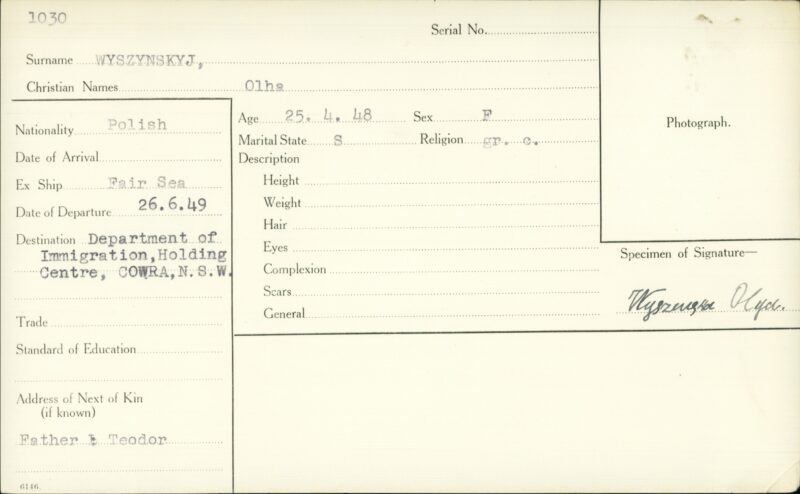 1030
Serial No.
Surname WYSZYNSKYJ,
Christian Names Olha
Nationality Polish
Date of Arrival
Ex Ship Fair Sea
Date of Departure 26.6.49
Destination Department of
Immigration, Holding
Centre, COWRA, N.S.W.
Trade
Standard of Education
Address of Next of Kin
(if known)
Father : Teodor
6146.
Age 25. 4. 48 Sex F
Marital State S Religion gr. c.
Description
Height
Weight
Hair
Eyes
Complexion
Scars
General
Photograph.
Specimen of Signature—